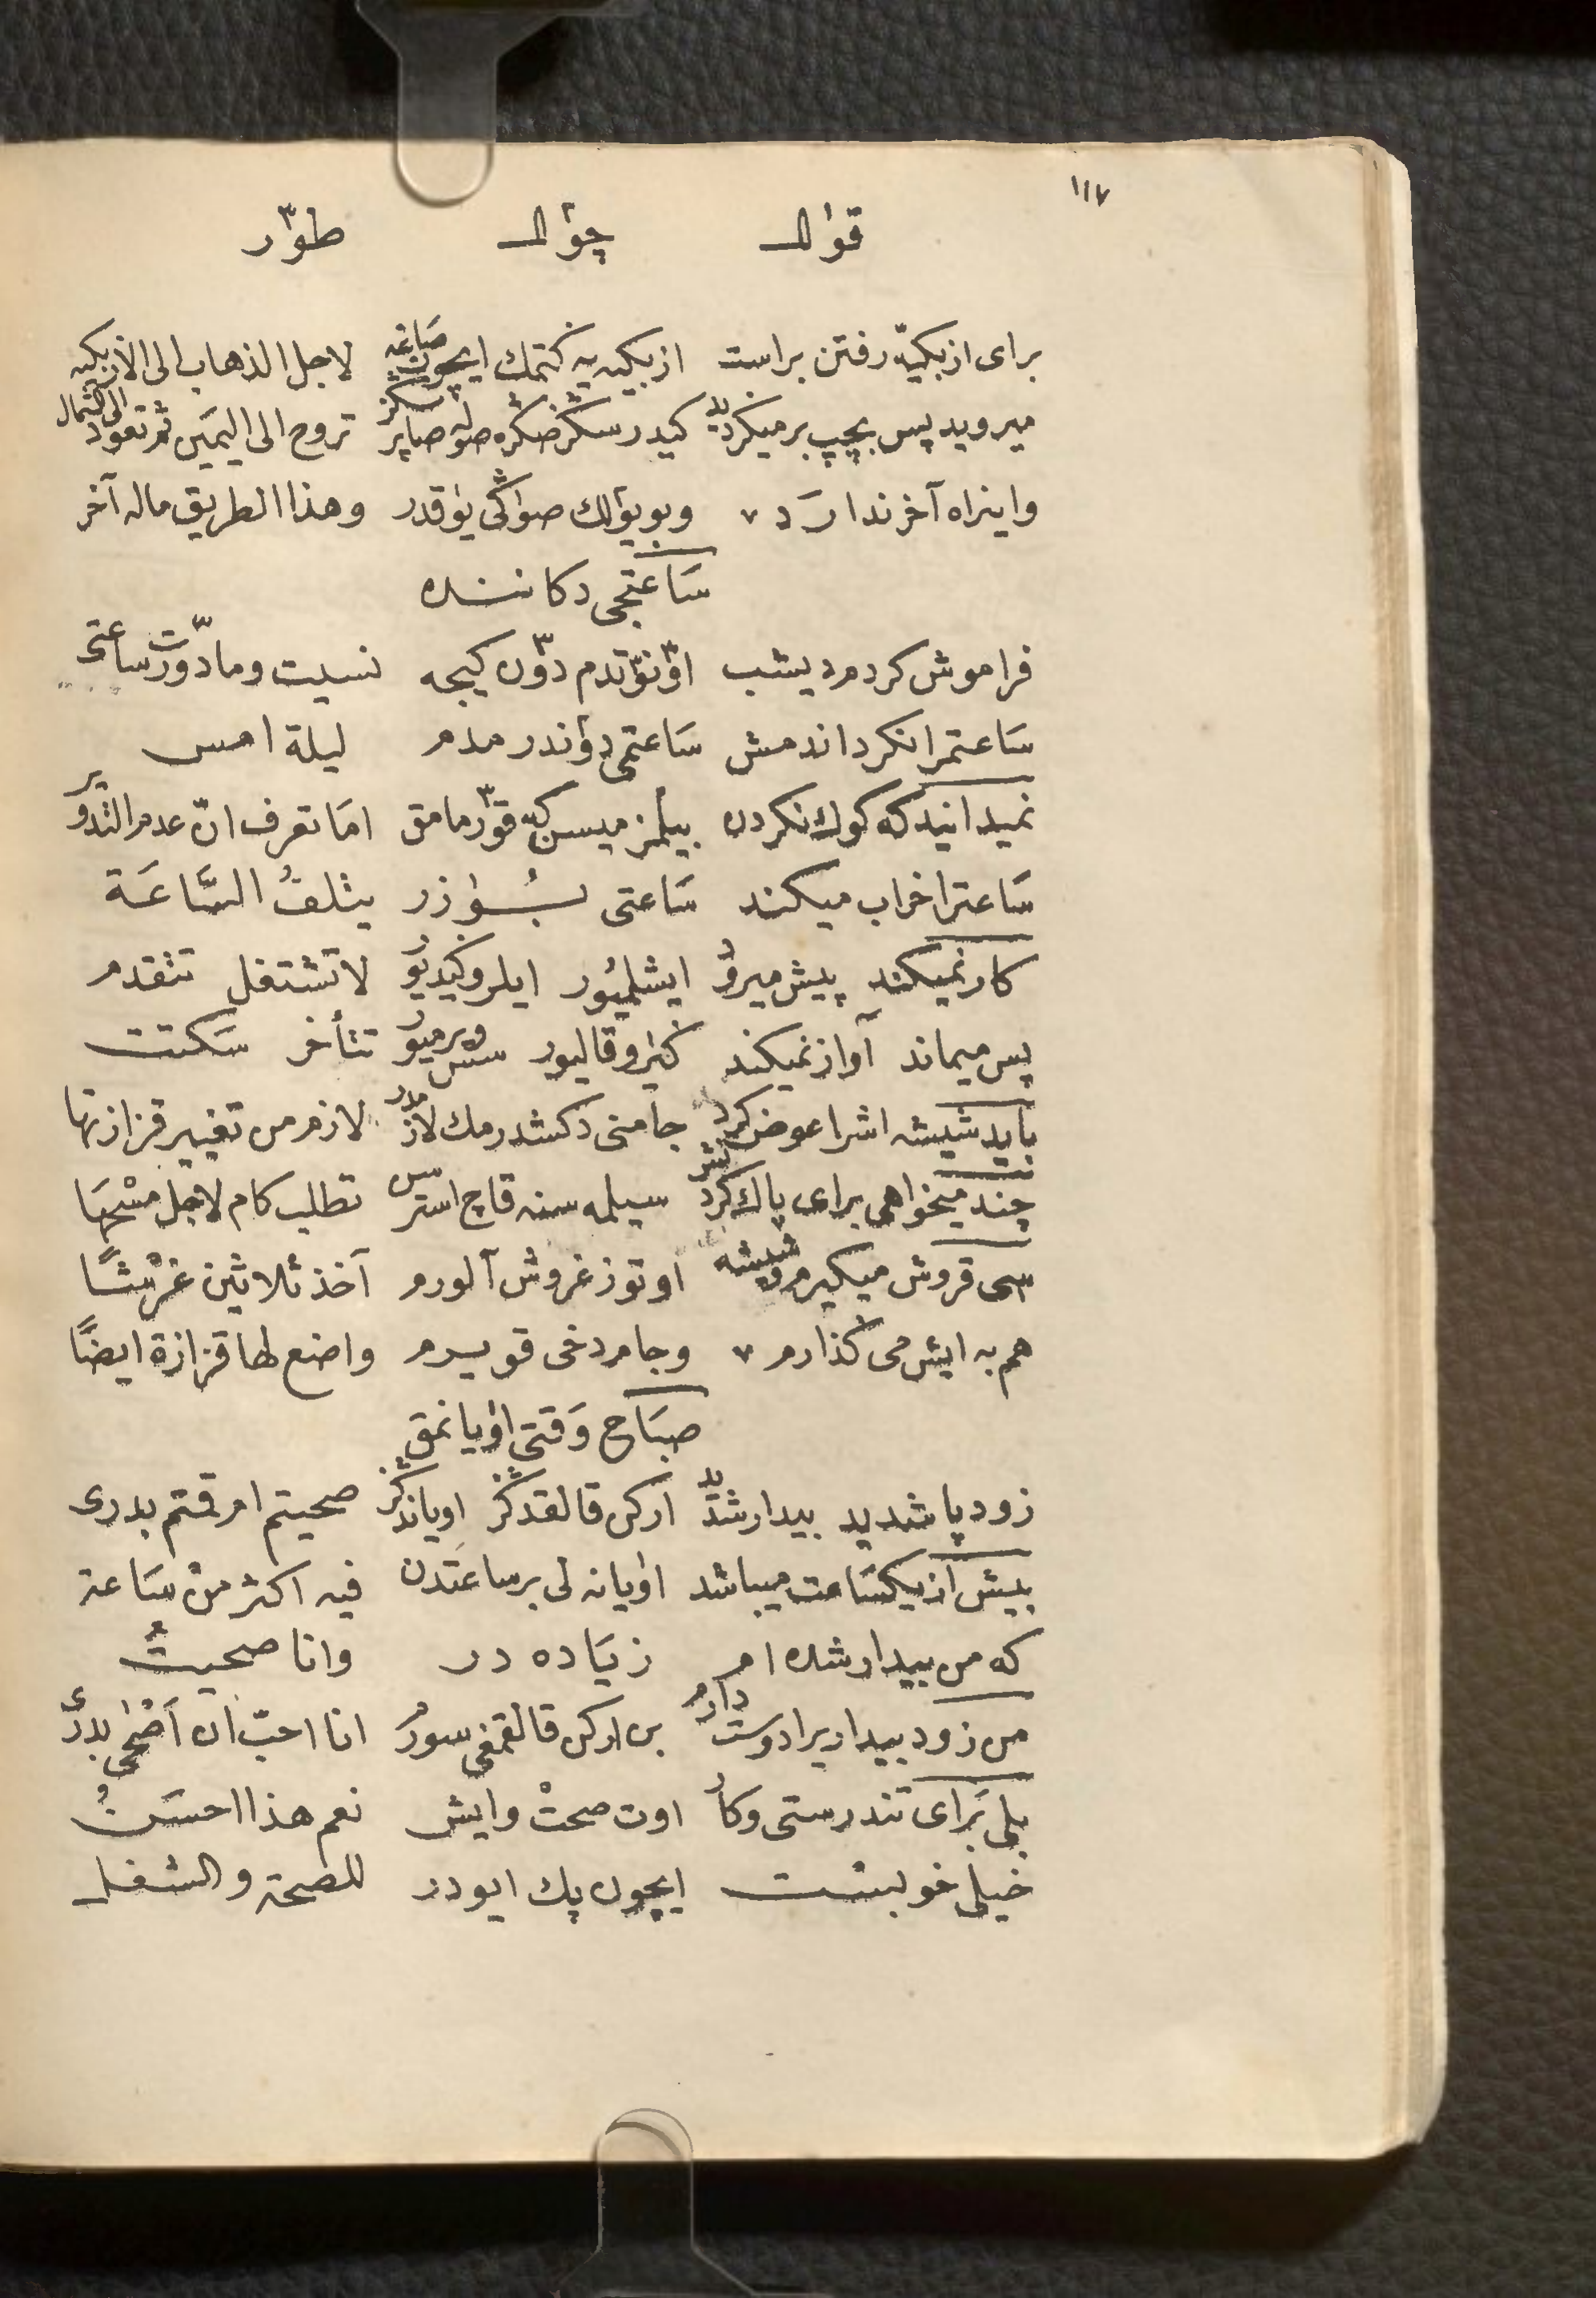 ١١٧
قوال چوال طوار
برای ازبکیّه رفتن براست ازبکیه یه کتمك ایچون صاغه لاجل الذهاب الی الازبکیه
میروید پس بچپ برمیکردید کیدرسكز صكره صوله صاپرسكز تروح الی الیمین ثم تعود الی الشمال
واینراه آخر ندارد ٧ وبو یولك صوڭی یوقدر وهذا الطریق ماله آخر
سَاعتجی دکاننده
فراموش کردم دیشب اونوتدم دون کیجه نسیت وما دوّرت ساعتی
سَاعتمرا نکرداندمش سَاعتمی دوندرمدم لیلة امس
نمیدانید که کوك نکردن بیلمزمیسن که قورمامق امَا تعرف انّ عدم التدویر
سَاعترا خراب میکند سَاعتی بُوزر یتلفُ السَّاعَة
کار نمیکند پیش میرود ایشلمیُور ایلرو کیدیور لا تشتغل تتقدم
پس میماند آواز نمیکند کیرو قالیور سس ویرمیور تتأخر سَکتت
باید شیشه اشرا عوض کرد جامنی دکشدرمك لازمدر لازم من تغییر قزازتها
چند میخواهی برای پاك کردنش سیلمه سنه قاچ استرسن تطلب کام لاجل مسْحهَا
سی قروش میکیرم وشیشه اوتوز غروش آلورم آخذ ثلاثین غرْشًا
هم به ایش می کذارم ٧ وجام دخی قویرم واضع لها قزازة ایضًا
صبَاح وَقتی اویانمق
زود پا شدید بیدار شدید ارکن قالقدكز اویاندكز صحیتم ام قمتم بدری
بیش از یکسَاعت میباشد اویانه لی بر ساعتدن فیه اکثر منْ سَاعة
که من بیدار شده ام زیَاده در وانا صحیتُ
من زود بیداریرا دوست دارم بن ارکن قالقمغی سورم انا احبّ ان اَصْحی بدری
بلی بَرای تندرستی وکار اوت صحتْ وایش نعم هذا احسَنُ
خیلی خوبست ایچون پك ایودر للصحة والشغل